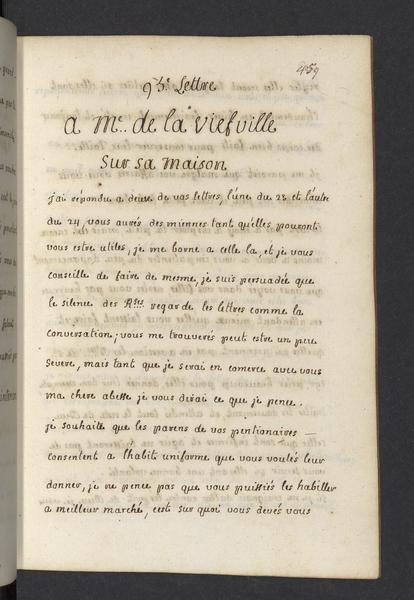 459
93e. Lettre
a Me.. de la viefville
sur sa maison
j'ai répondu a deux de vos lettres, l'une du 23 et l'autre
du 24 vous aurés des miennes tant qu'elles pouront
vous estre utiles, je me borne a celle la, et je vous
conseille de faire de mesme, je suis persuadée que
le silence des Rses regarde les lettres comme la
conversation; vous me trouverés peut estre un peu
severe, mais tant que je serai en comerce avec vous
ma chere abesse je vous dirai ce que je pence.
je souhaite que les parens de vos pentionaires —
consentent a l'habit uniforme que vous voulés leur
donner, je ne pence pas que vous puissiés les habiller
a meilleur marché, c'est sur quoi vous devés vous